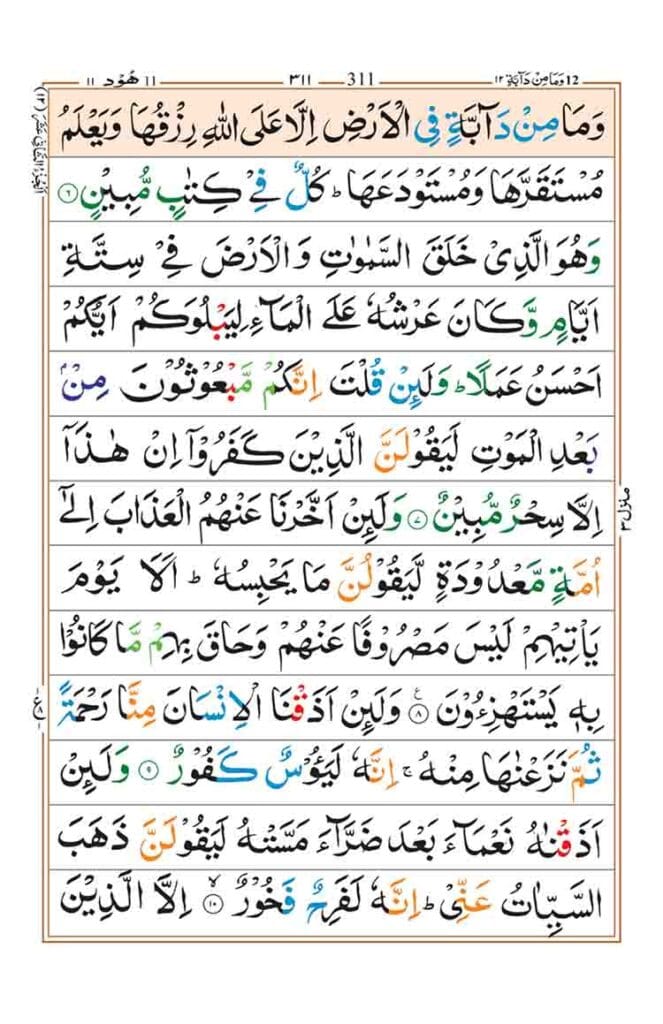 12 وَمَا مِنْ دَآبَّةٍ ۱۲ 311 ۳۱۱ 11 هُوْد ۱۱
وَمَا مِنْ دَآبَّةٍ فِي الْاَرْضِ اِلَّا عَلَى اللّٰهِ رِزْقُهَا وَيَعْلَمُ
مُسْتَقَرَّهَا وَمُسْتَوْدَعَهَا ؕ كُلٌّ فِيْ كِتٰبٍ مُّبِيْنٍ ۶
وَهُوَ الَّذِيْ خَلَقَ السَّمٰوٰتِ وَالْاَرْضَ فِيْ سِتَّةِ
اَيَّامٍ وَّكَانَ عَرْشُهٗ عَلَى الْمَآءِ لِيَبْلُوَكُمْ اَيُّكُمْ
اَحْسَنُ عَمَلًا ؕ وَلَئِنْ قُلْتَ اِنَّكُمْ مَّبْعُوْثُوْنَ مِنْۢ
بَعْدِ الْمَوْتِ لَيَقُوْلَنَّ الَّذِيْنَ كَفَرُوْۤا اِنْ هٰذَاۤ
اِلَّا سِحْرٌ مُّبِيْنٌ ۷ وَلَئِنْ اَخَّرْنَا عَنْهُمُ الْعَذَابَ اِلٰٓى
اُمَّةٍ مَّعْدُوْدَةٍ لَّيَقُوْلُنَّ مَا يَحْبِسُهٗ ؕ اَلَا يَوْمَ
يَاْتِيْهِمْ لَيْسَ مَصْرُوْفًا عَنْهُمْ وَحَاقَ بِهِمْ مَّا كَانُوْا
بِهٖ يَسْتَهْزِءُوْنَ ۸ ع وَلَئِنْ اَذَقْنَا الْاِنْسَانَ مِنَّا رَحْمَةً
ثُمَّ نَزَعْنٰهَا مِنْهُ ۚ اِنَّهٗ لَيَـُٔوْسٌ كَفُوْرٌ ۹ وَلَئِنْ
اَذَقْنٰهُ نَعْمَآءَ بَعْدَ ضَرَّآءَ مَسَّتْهُ لَيَقُوْلَنَّ ذَهَبَ
السَّيِّاٰتُ عَنِّيْ ؕ اِنَّهٗ لَفَرِحٌ فَخُوْرٌ ۱۰ ۙ اِلَّا الَّذِيْنَ
منزل ۳
ع ۸